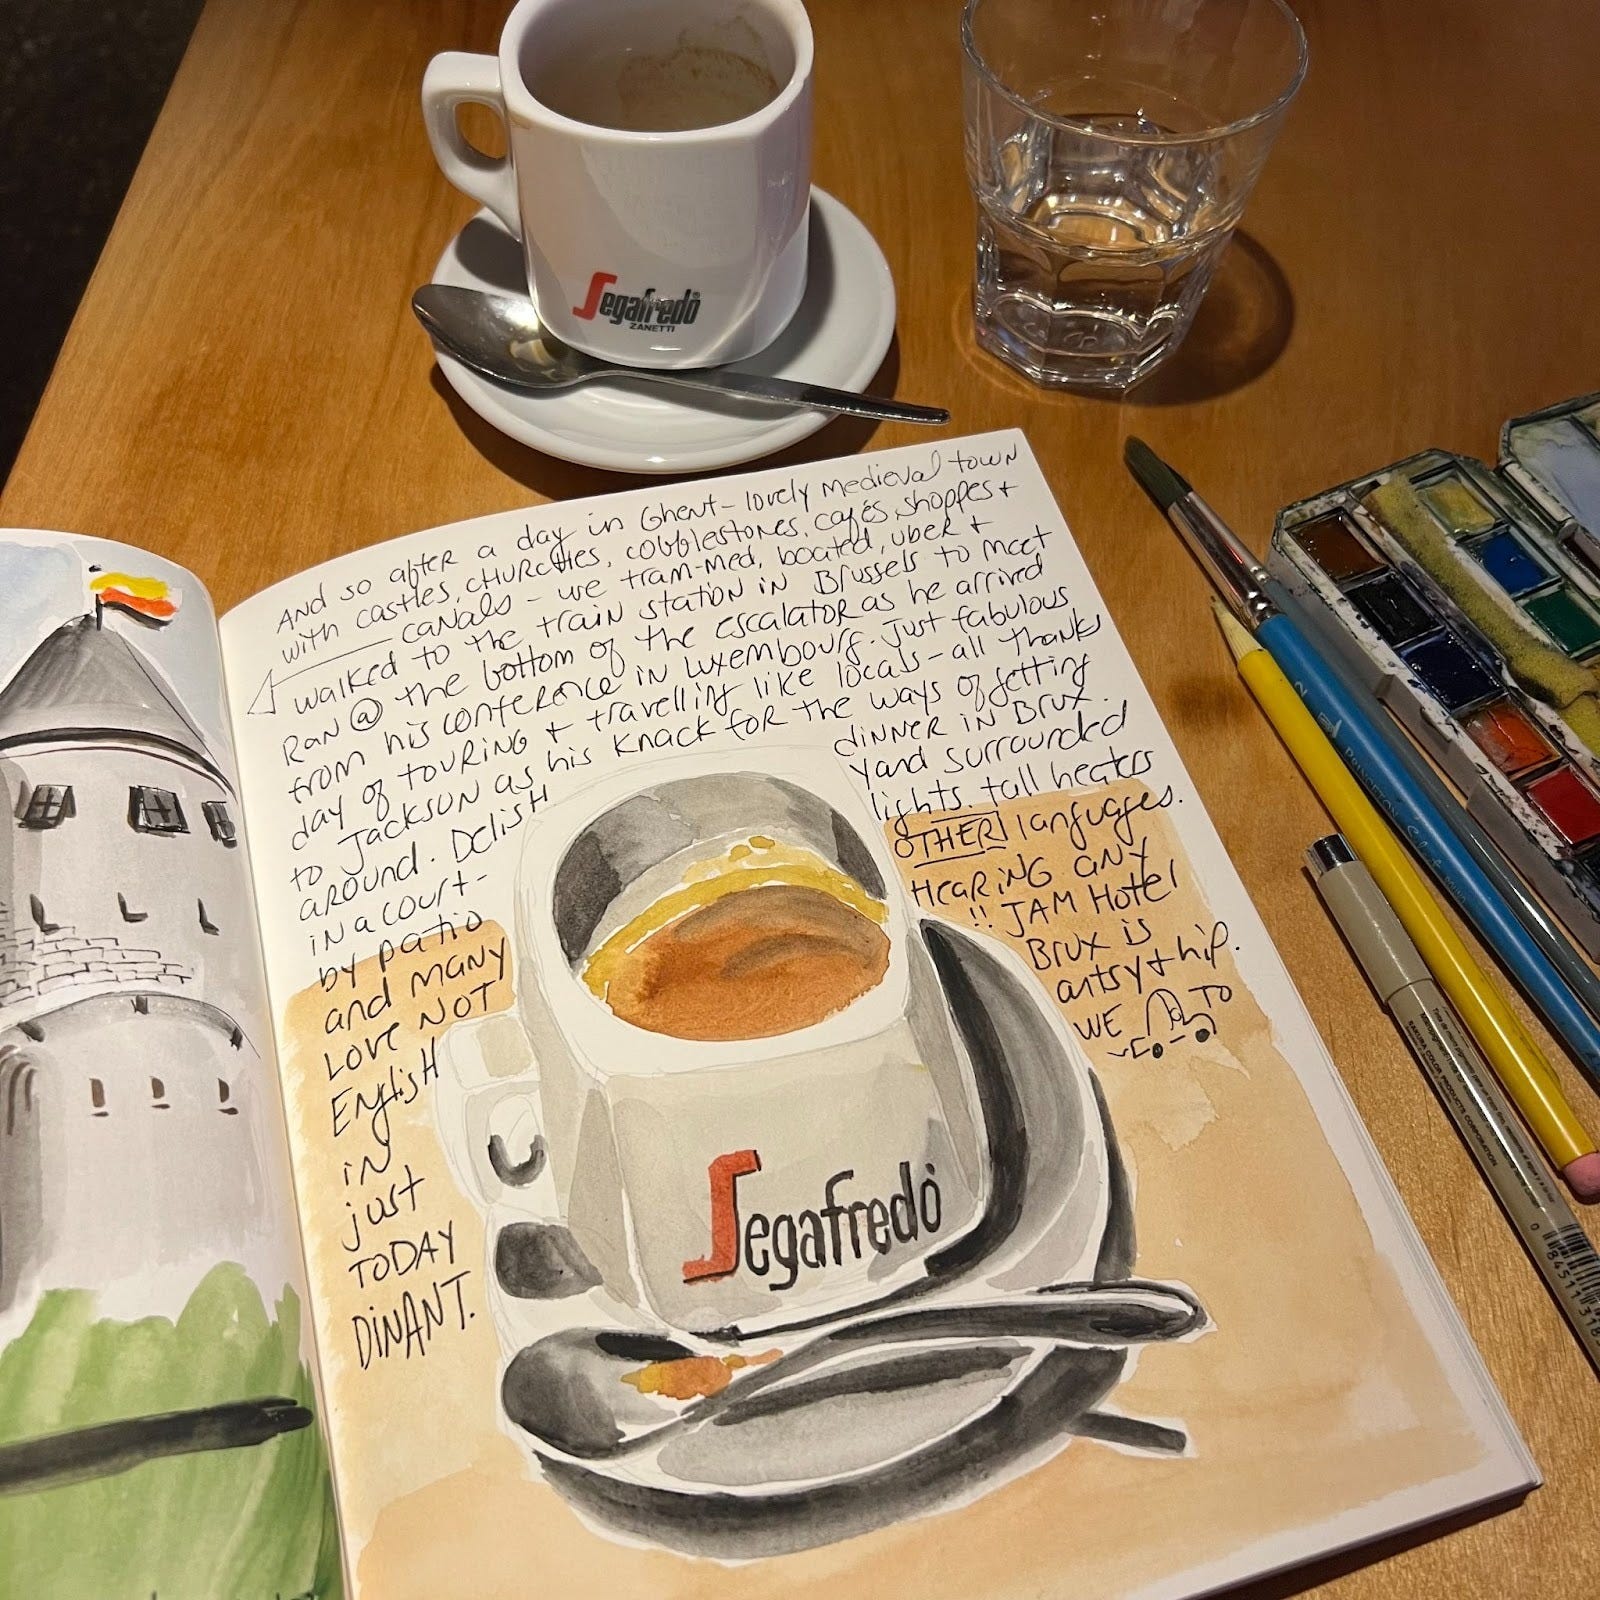 Segafredo
ZANETTI
And so after a day in Ghent - lovely medieval town
with castles, CHURCHES, cobblestones, cafés, shoppes +
canals - we tram-med, boated, uber +
walked to the train station in Brussels to meet
Ran @ the bottom of the escalator as he arrived
from his conference in Luxembourg. Just fabulous
day of touring + travelling like locals - all thanks
to Jackson as his knack for the ways of getting
around. Delish dinner in Brux.
in a court- yard surrounded
by patio lights, tall heaters
and many OTHER languages.
Love NOT HEARING any
English !! JAM Hotel
in Brux is
just artsy + hip.
TODAY WE TO
DINANT.
Segafredo
2 PRINCETON Select
SAKURA COLOR PRODUCTS CORPORATION